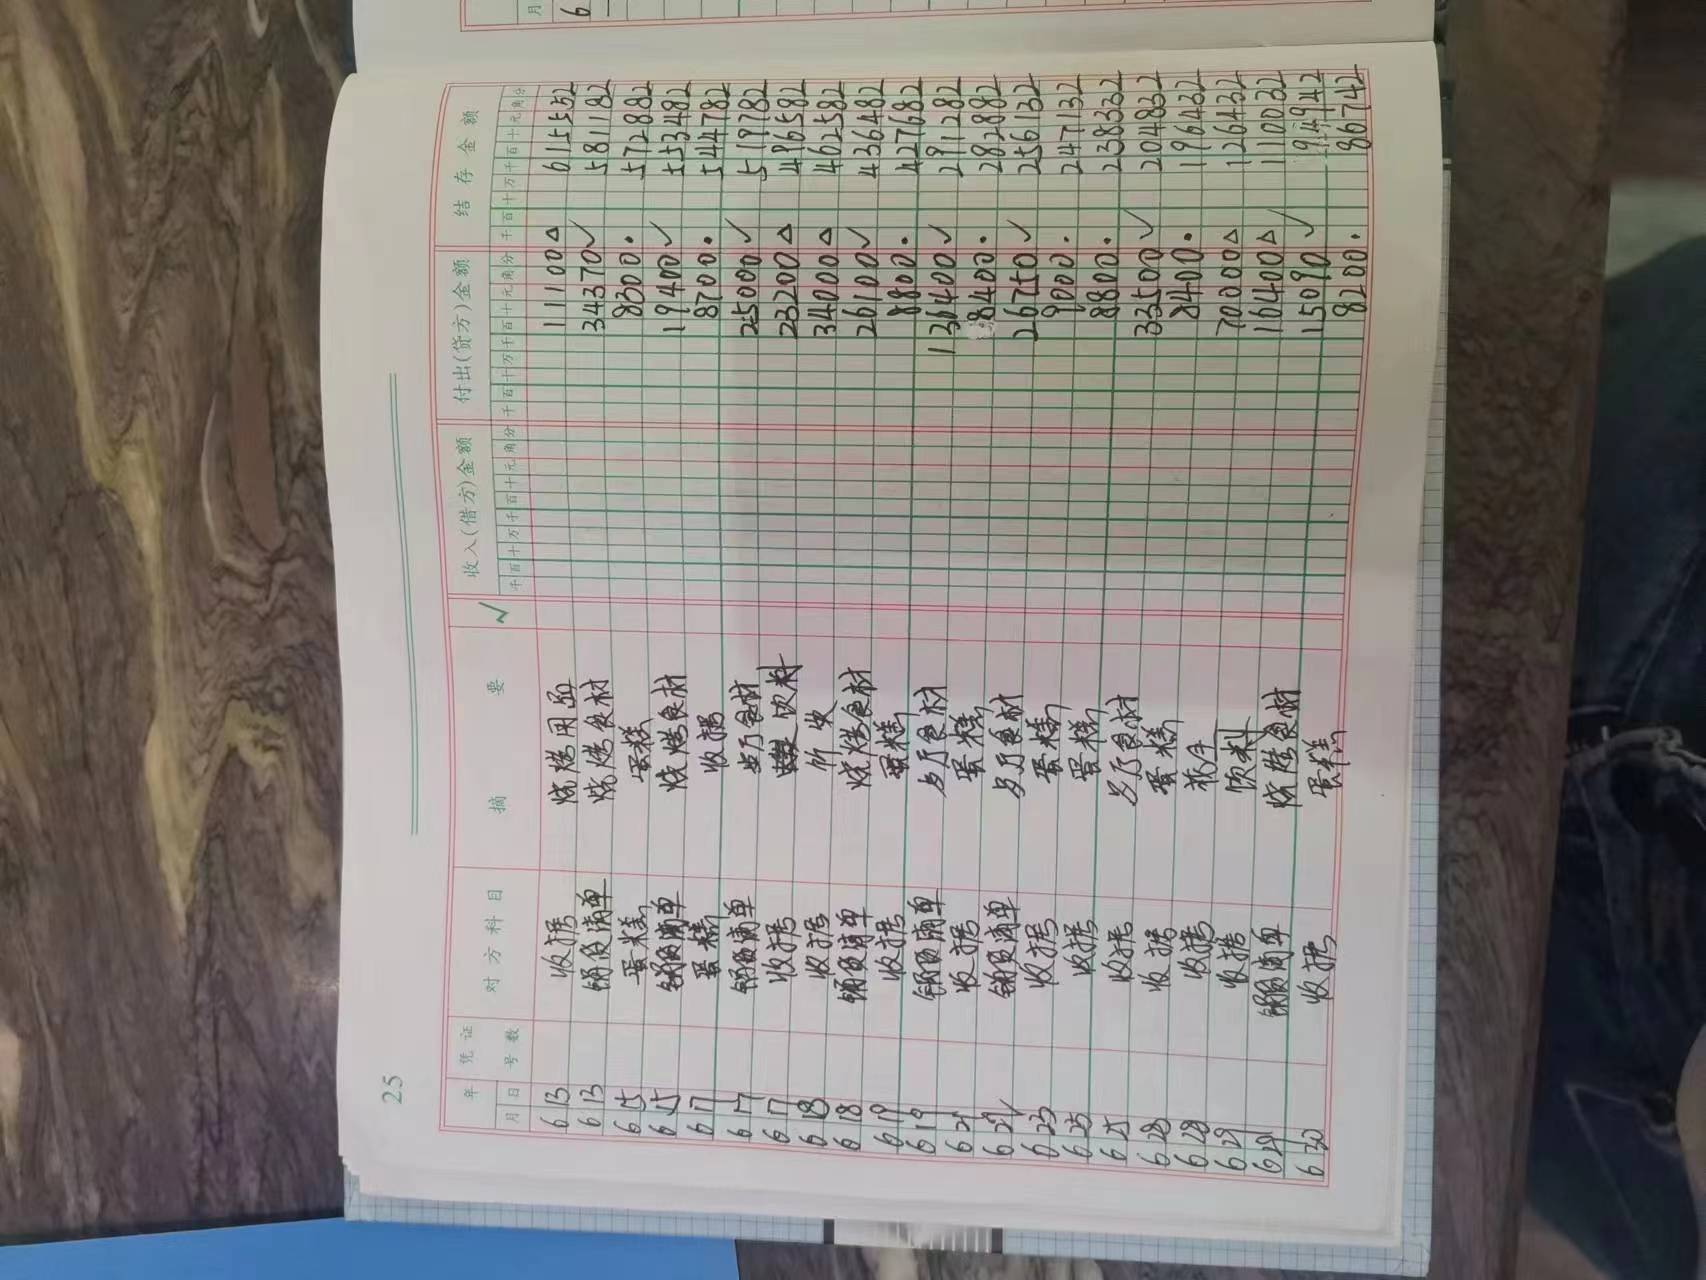 25
年 凭证 对方科目 摘要 ✓ 收入(借方)金额 付出(贷方)金额 结存金额
月 日 号数 千百十万千百十元角分 千百十万千百十元角分 千百十万千百十元角分
6 13 收据 烧烤用品 11100△ 615552
6 13 销货清单 烧烤食材 34370✓ 581182
6 15 蛋糕 蛋糕 8300· 572882
6 15 销货清单 烧烤食材 19400✓ 553482
6 17 蛋糕 收据 8700· 544782
6 17 销货清单 食材 25000✓ 519782
6 17 收据 饮料 23200△ 496582
6 18 收据 34000△ 462582
6 18 销货清单 烧烤食材 26100✓ 436482
6 19 收据 蛋糕 8800· 427682
6 19 销货清单 食材 136400✓ 291282
6 21 收据 蛋糕 8400· 282882
6 22 销货清单 食材 26750✓ 256132
6 23 收据 蛋糕 9000· 247132
6 25 收据 蛋糕 8800· 238332
6 25 收据 食材 33500✓ 204832
6 28 收据 蛋糕 8400· 196432
6 28 收据 70000△ 126432
6 29 收据 饮料 16400△ 110032
6 29 销货清单 烧烤食材 15090✓ 94942
6 30 收据 蛋糕 8200· 86742
月
6